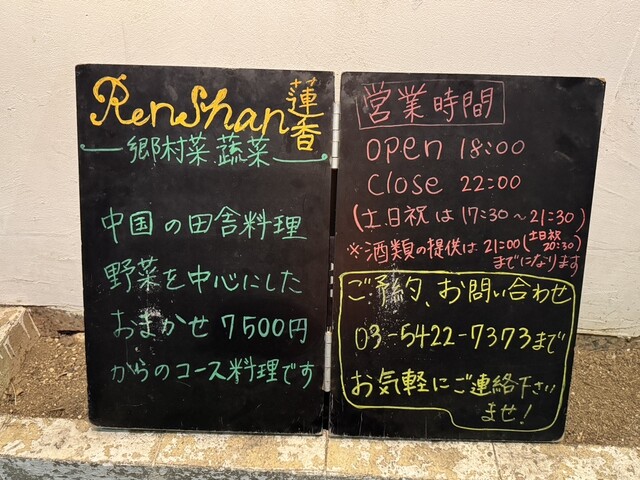 RenShan 蓮香
郷村菜 蔬菜
中国の田舎料理
野菜を中心にした
おまかせ7500円
からのコース料理です
営業時間
open 18:00
close 22:00
(土.日祝は17:30～21:30)
※酒類の提供は21:00(土日祝20:30)
までになります
ご予約、お問い合わせ
03-5422-7373まで
お気軽にご連絡下さい
ませ!